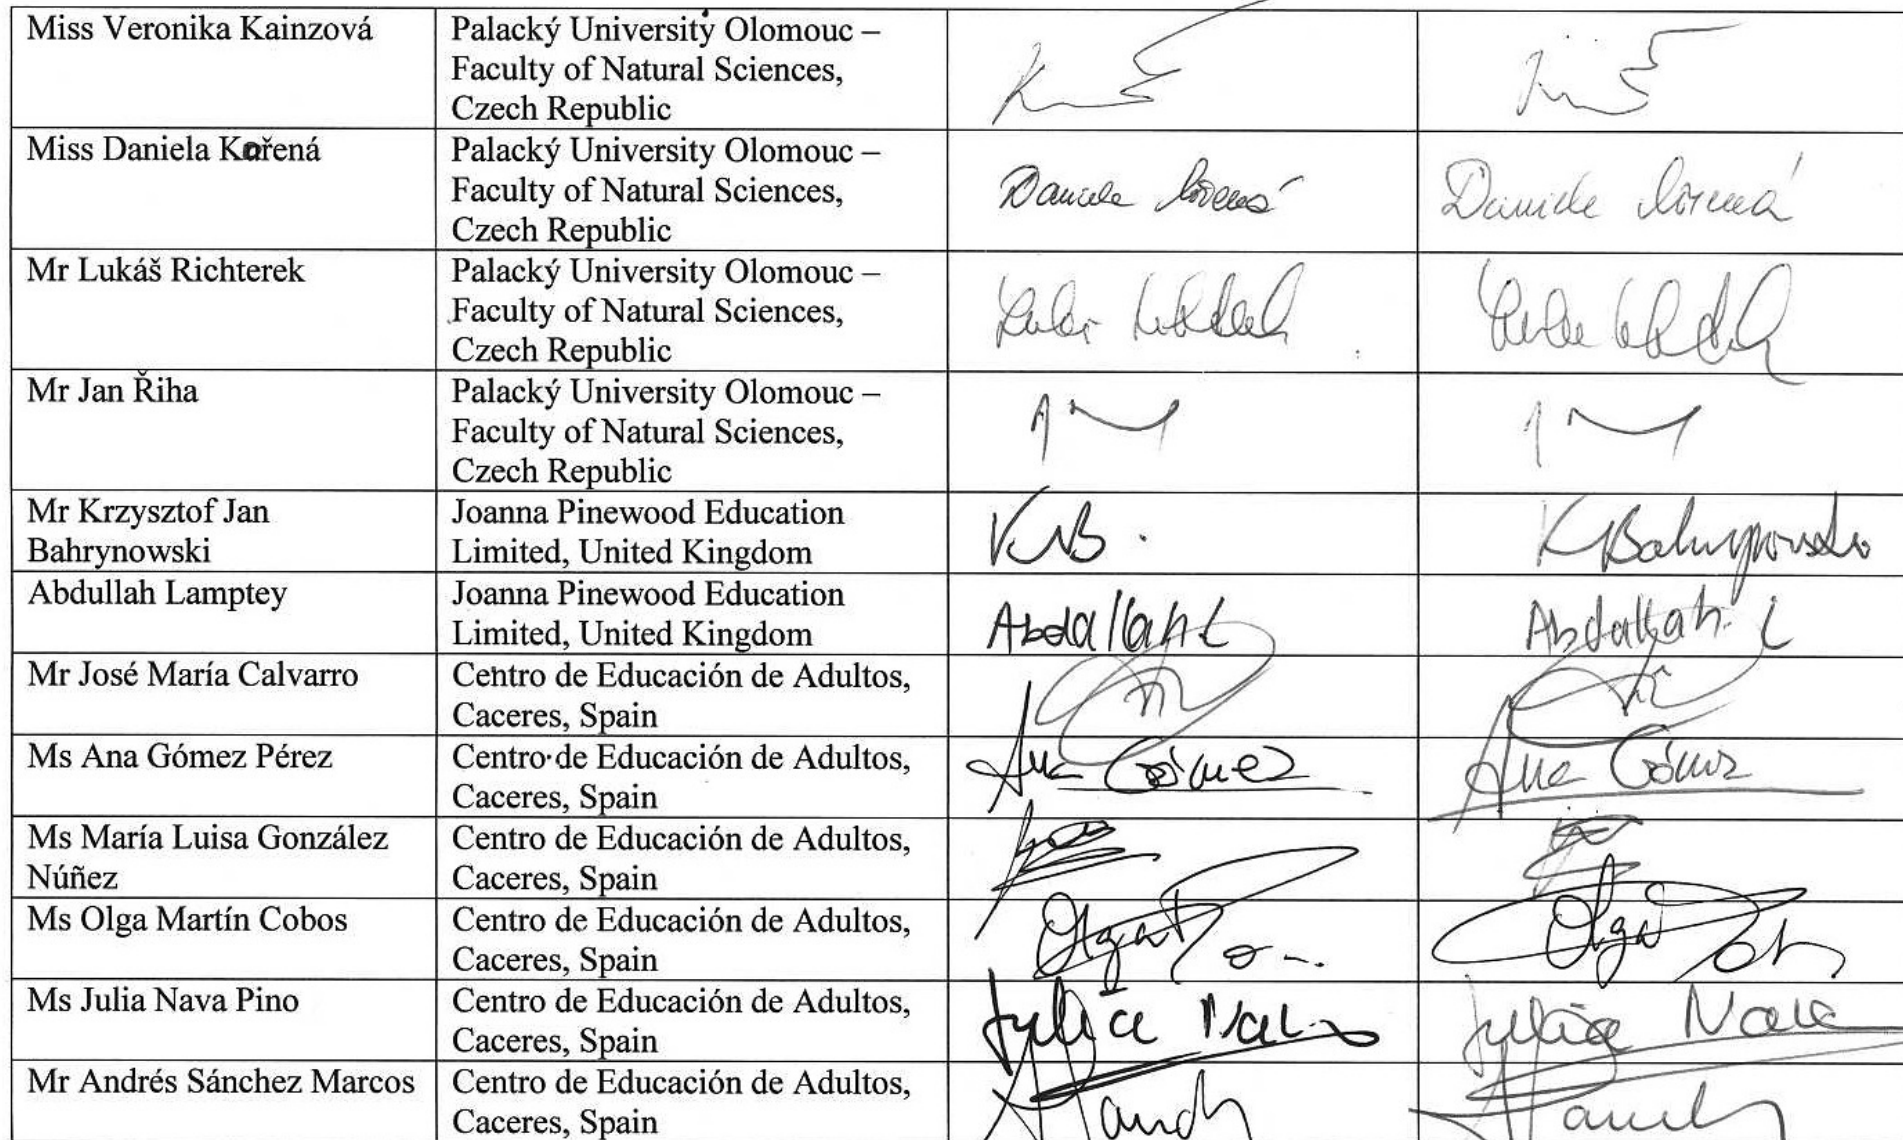 Miss Veronika Kainzová
Palacký University Olomouc –
Faculty of Natural Sciences,
Czech Republic
Miss Daniela Kořená
Palacký University Olomouc –
Faculty of Natural Sciences,
Czech Republic
Daniela
Daniela
Mr Lukáš Richterek
Palacký University Olomouc –
Faculty of Natural Sciences,
Czech Republic
Mr Jan Řiha
Palacký University Olomouc –
Faculty of Natural Sciences,
Czech Republic
Mr Krzysztof Jan
Bahrynowski
Joanna Pinewood Education
Limited, United Kingdom
K Bahrynowski
Abdullah Lamptey
Joanna Pinewood Education
Limited, United Kingdom
Abdallah L
Abdallah. L
Mr José María Calvarro
Centro de Educación de Adultos,
Caceres, Spain
Ms Ana Gómez Pérez
Centro de Educación de Adultos,
Caceres, Spain
Ana Gómez
Ana Gómez
Ms María Luisa González
Núñez
Centro de Educación de Adultos,
Caceres, Spain
Ms Olga Martín Cobos
Centro de Educación de Adultos,
Caceres, Spain
Olga
Olga
Ms Julia Nava Pino
Centro de Educación de Adultos,
Caceres, Spain
Julia Nava
Julia Nava
Mr Andrés Sánchez Marcos
Centro de Educación de Adultos,
Caceres, Spain